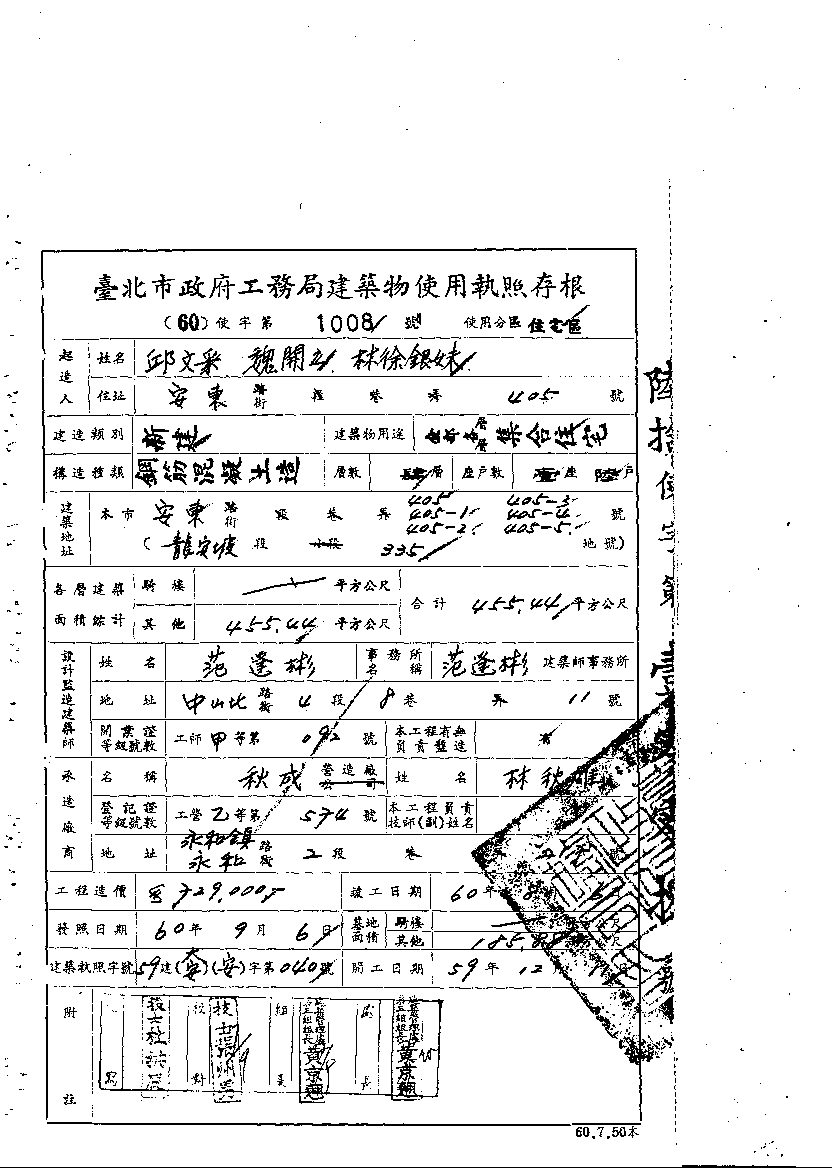 臺北市政府工務局建築物使用執照存根
(60)使字第 1008 號 使用分區 住宅區
起造人 姓名 邱文采 魏開 林徐銀妹
住址 安東 路街 段 巷 弄 405 號
建造類別 新建 建築物用途 集合住宅
構造種類 鋼筋混凝土造 層數 肆層 座戶數 壹座 陸戶
建築地址 本市 安東 路街 段 巷 弄 405 405-1 405-2 405-3 405-4 405-5 號
(龍安坡 段 小段 335 地號)
各層建築面積綜計 騎樓 平方公尺 合計 455.44 平方公尺
其他 455.44 平方公尺
設計監造建築師 姓名 范逢彬 事務所名稱 范逢彬 建築師事務所
地址 中山北 路街 4 段 8 巷 弄 11 號
開業證等級號數 工師 甲 等第 092 號 本工程有無負責監造 有
承造廠商 名稱 秋成 營造廠公司 姓名 林秋雄
登記證等級號數 工營 乙 等第 574 號 本工程負責技師(副)姓名
地址 永和鎮 永和 路街 2 段 巷
工程造價 729,000 竣工日期 60年
發照日期 60年 9月 6日 基地面積 騎樓
其他
建築執照字號 59建( )(安)字第040號 開工日期 59年 12月
附註
校對
組長 黃京翹
處長 黃京翹
60.7.50本
陸拾使字第壹